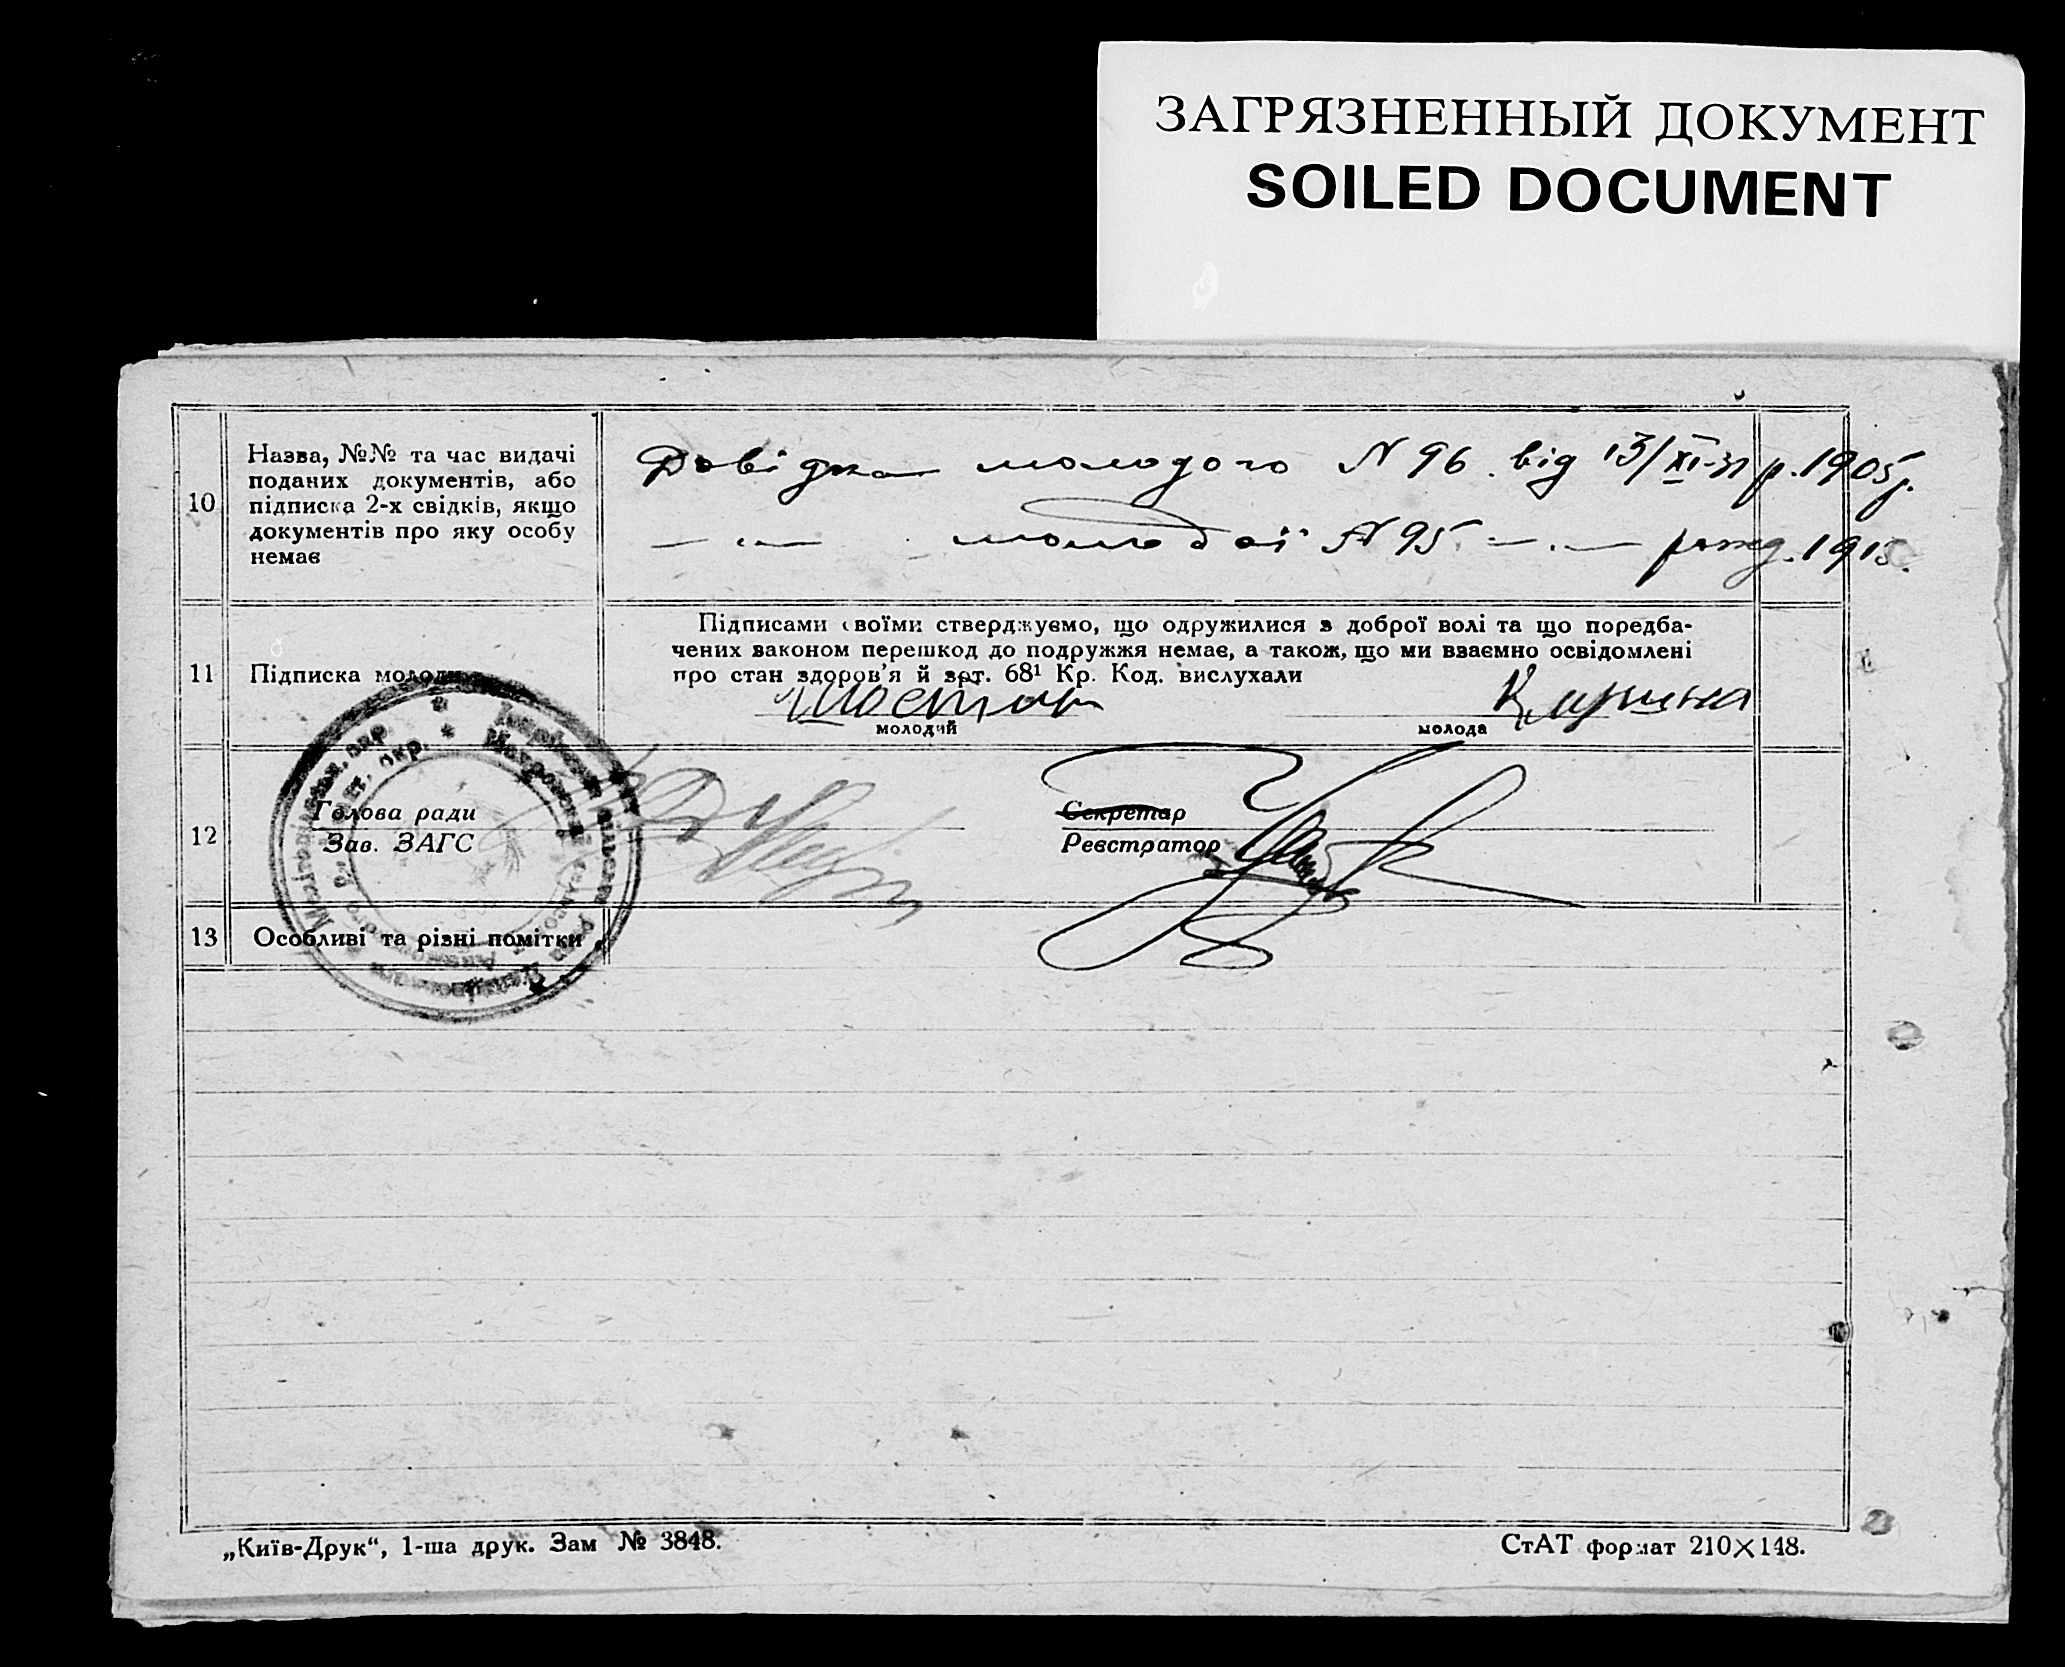 ЗАГРЯЗНЕННЫЙ ДОКУМЕНТ
SOILED DOCUMENT
10
Назва, №№ та час видачі
поданих документів, або
підписка 2-х свідків, якщо
документів про яку особу
немає
Довідка молодого N 96 від 13/XI-31 р. 1905 р.
— „ — молодої N 95 — „ — рожд. 1913.
11
Підписка молодих
Підписами своїми стверджуємо, що одружилися з доброї волі та що передба-
чених законом перешкод до подружжя немає, а також, що ми взаємно освідомлені
про стан здоров'я й арт. 68¹ Кр. Код. вислухали
молодий
молода
12
Голова ради
Зав. ЗАГС
Секретар
Реєстратор
13
Особливі та різні помітки
„Київ-Друк“, 1-ша друк. Зам № 3848.
СтАТ формат 210×148.